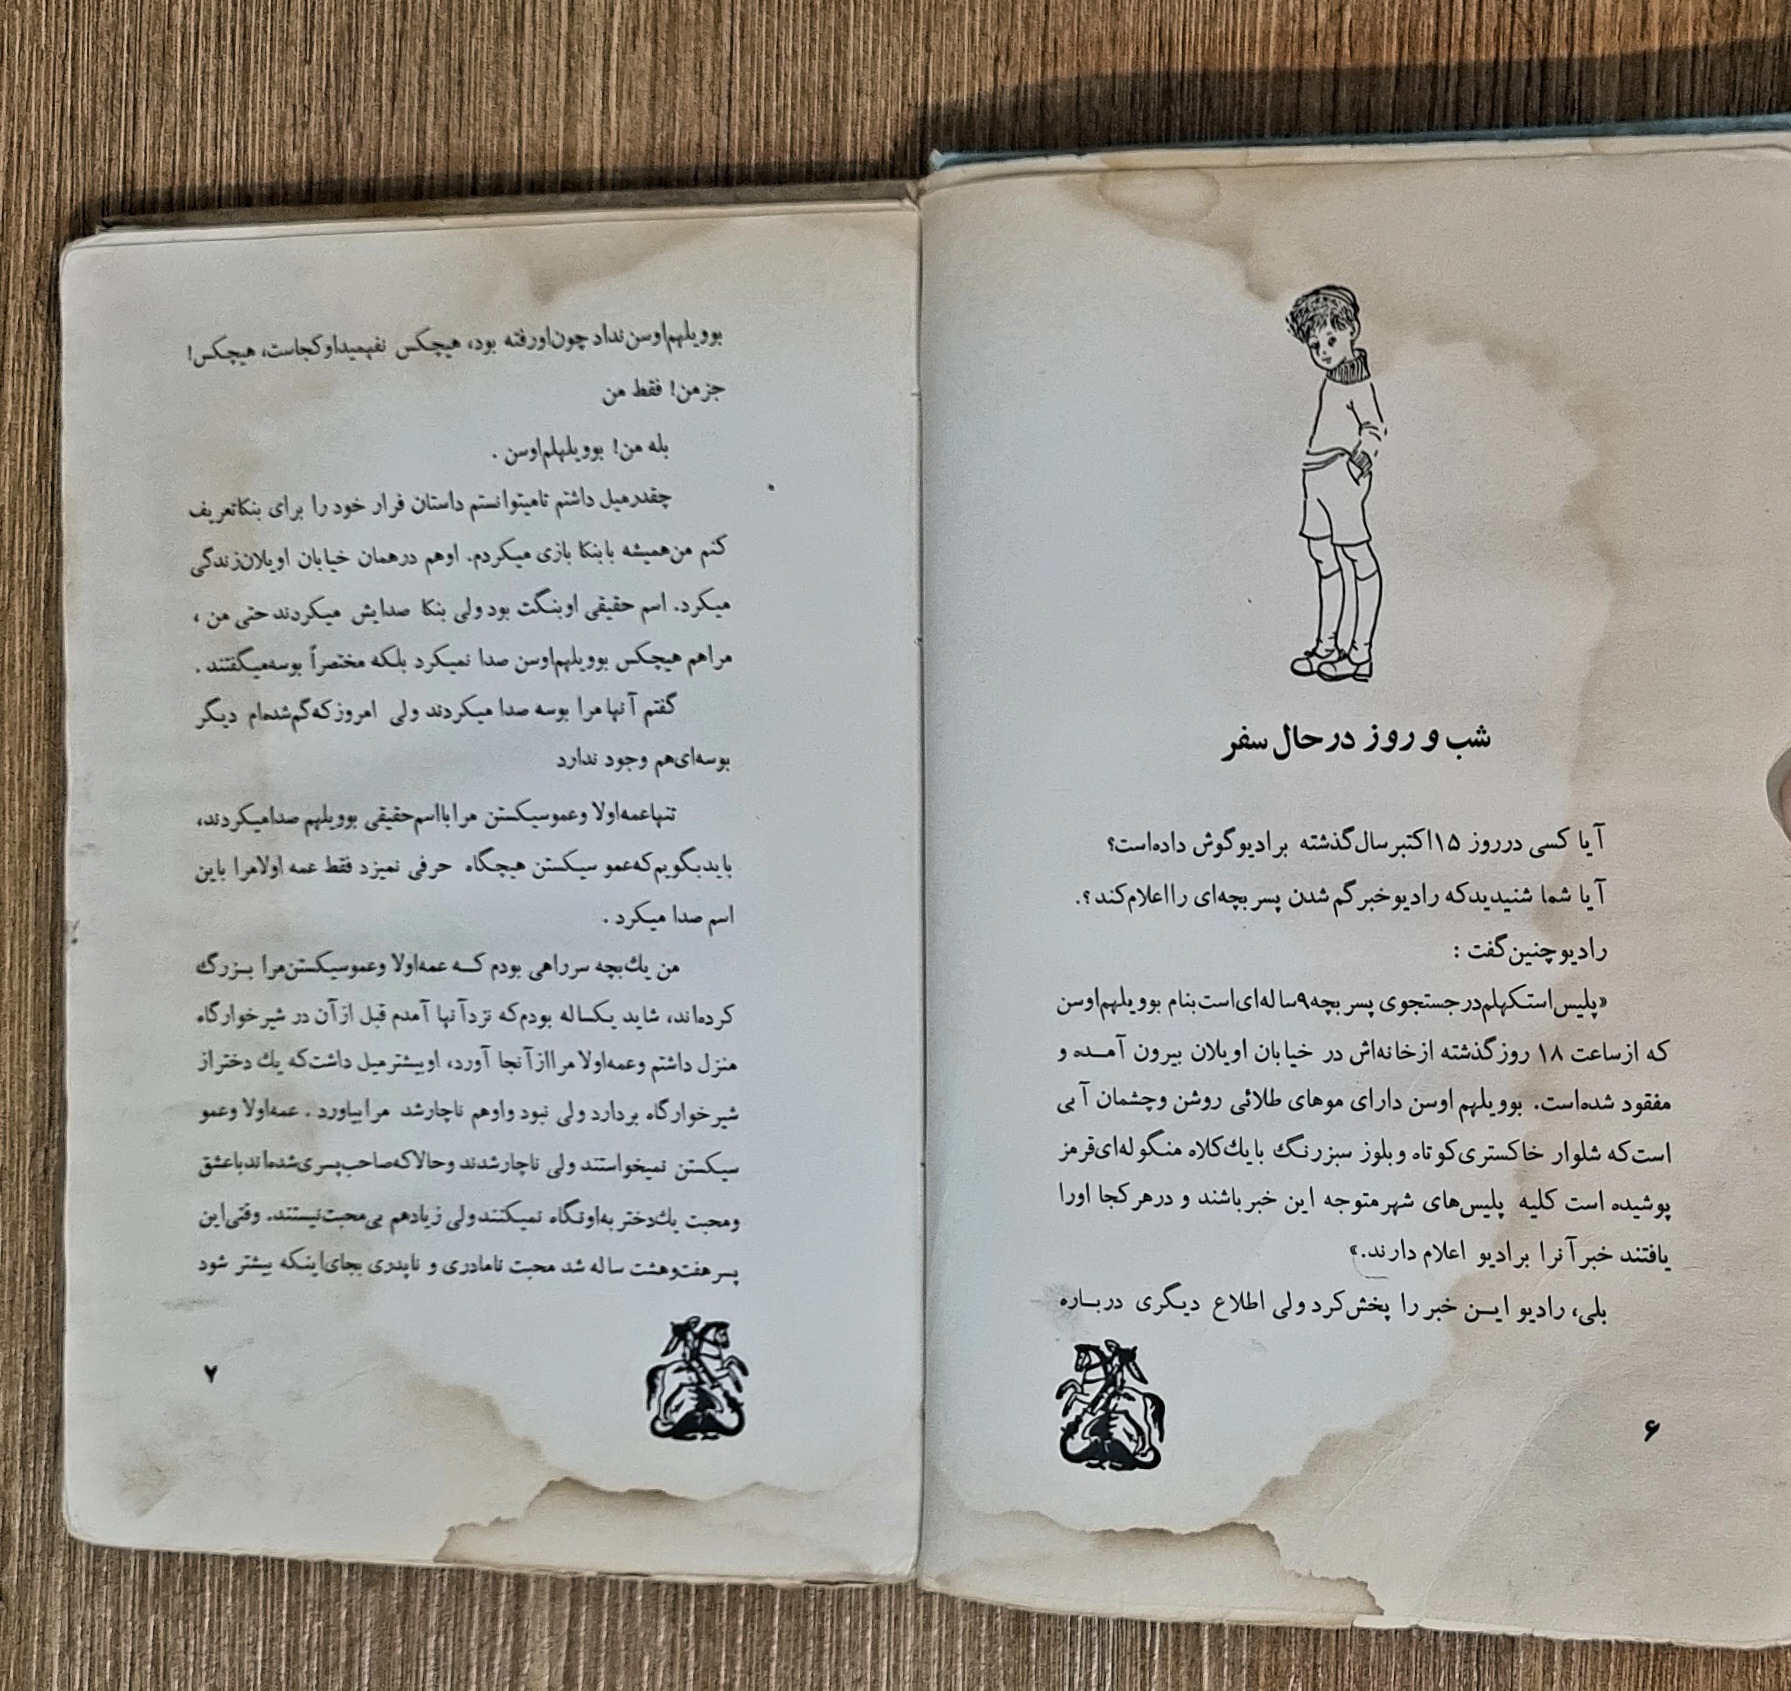 شب و روز در حال سفر
آیا کسی در روز ۱۵ اکتبر سال گذشته برادیو گوش داده است؟
آیا شما شنیدید که رادیو خبر گم شدن پسر بچه‌ای را اعلام کند؟.
رادیو چنین گفت :
«پلیس استکهلم در جستجوی پسر بچه ۹ ساله‌ای است بنام بوویلهم اوسن
که از ساعت ۱۸ روز گذشته از خانه‌اش در خیابان اوپلان بیرون آمده و
مفقود شده است. بوویلهم اوسن دارای موهای طلائی روشن و چشمان آبی
است که شلوار خاکستری کوتاه و بلوز سبز رنگ با یك کلاه منگوله‌ای قرمز
پوشیده است کلیه پلیس‌های شهر متوجه این خبر باشند و در هر کجا اورا
یافتند خبر آنرا برادیو اعلام دارند.»
بلی، رادیو ایـن خبر را پخش کرد ولی اطلاع دیگری دربـاره
۶
بوویلهم اوسن نداد چون او رفته بود، هیچکس نفهمید او کجاست، هیچکس!
جز من! فقط من
بله من! بوویلهلم اوسن .
چقدر میل داشتم تا میتوانستم داستان فرار خود را برای بنکا تعریف
کنم من همیشه با بنکا بازی میکردم. اوهم در همان خیابان اوپلان زندگی
میکرد. اسم حقیقی او بنگت بود ولی بنکا صدایش میکردند حتی من ،
مراهم هیچکس بوویلهم اوسن صدا نمیکرد بلکه مختصراً بوسه میگفتند .
گفتم آنها مرا بوسه صدا میکردند ولی امروز که گم شده‌ام دیگر
بوسه‌ای هم وجود ندارد
تنها عمه اولا و عمو سیکستن مرا با اسم حقیقی بوویلهم صدا میکردند،
باید بگویم که عمو سیکستن هیچگاه حرفی نمیزد فقط عمه اولا مرا باین
اسم صدا میکرد .
من یك بچه سر راهی بودم کـه عمه اولا و عمو سیکستن مرا بـزرگ
کرده‌اند، شاید یکساله بودم که نزد آنها آمدم قبل از آن در شیرخوارگاه
منزل داشتم و عمه اولا مرا از آنجا آورد، او بیشتر میل داشت که یك دختر از
شیرخوارگاه بردارد ولی نبود و اوهم ناچار شد مرا بیاورد . عمه اولا و عمو
سیکستن نمیخواستند ولی ناچار شدند و حالا که صاحب پسری شده‌اند با عشق
و محبت یك دختر به او نگاه نمیکنند ولی زیادهم بی‌محبت نیستند. وقتی این
پسر هفت و هشت ساله شد محبت نامادری و ناپدری بجای اینکه بیشتر شود
۷